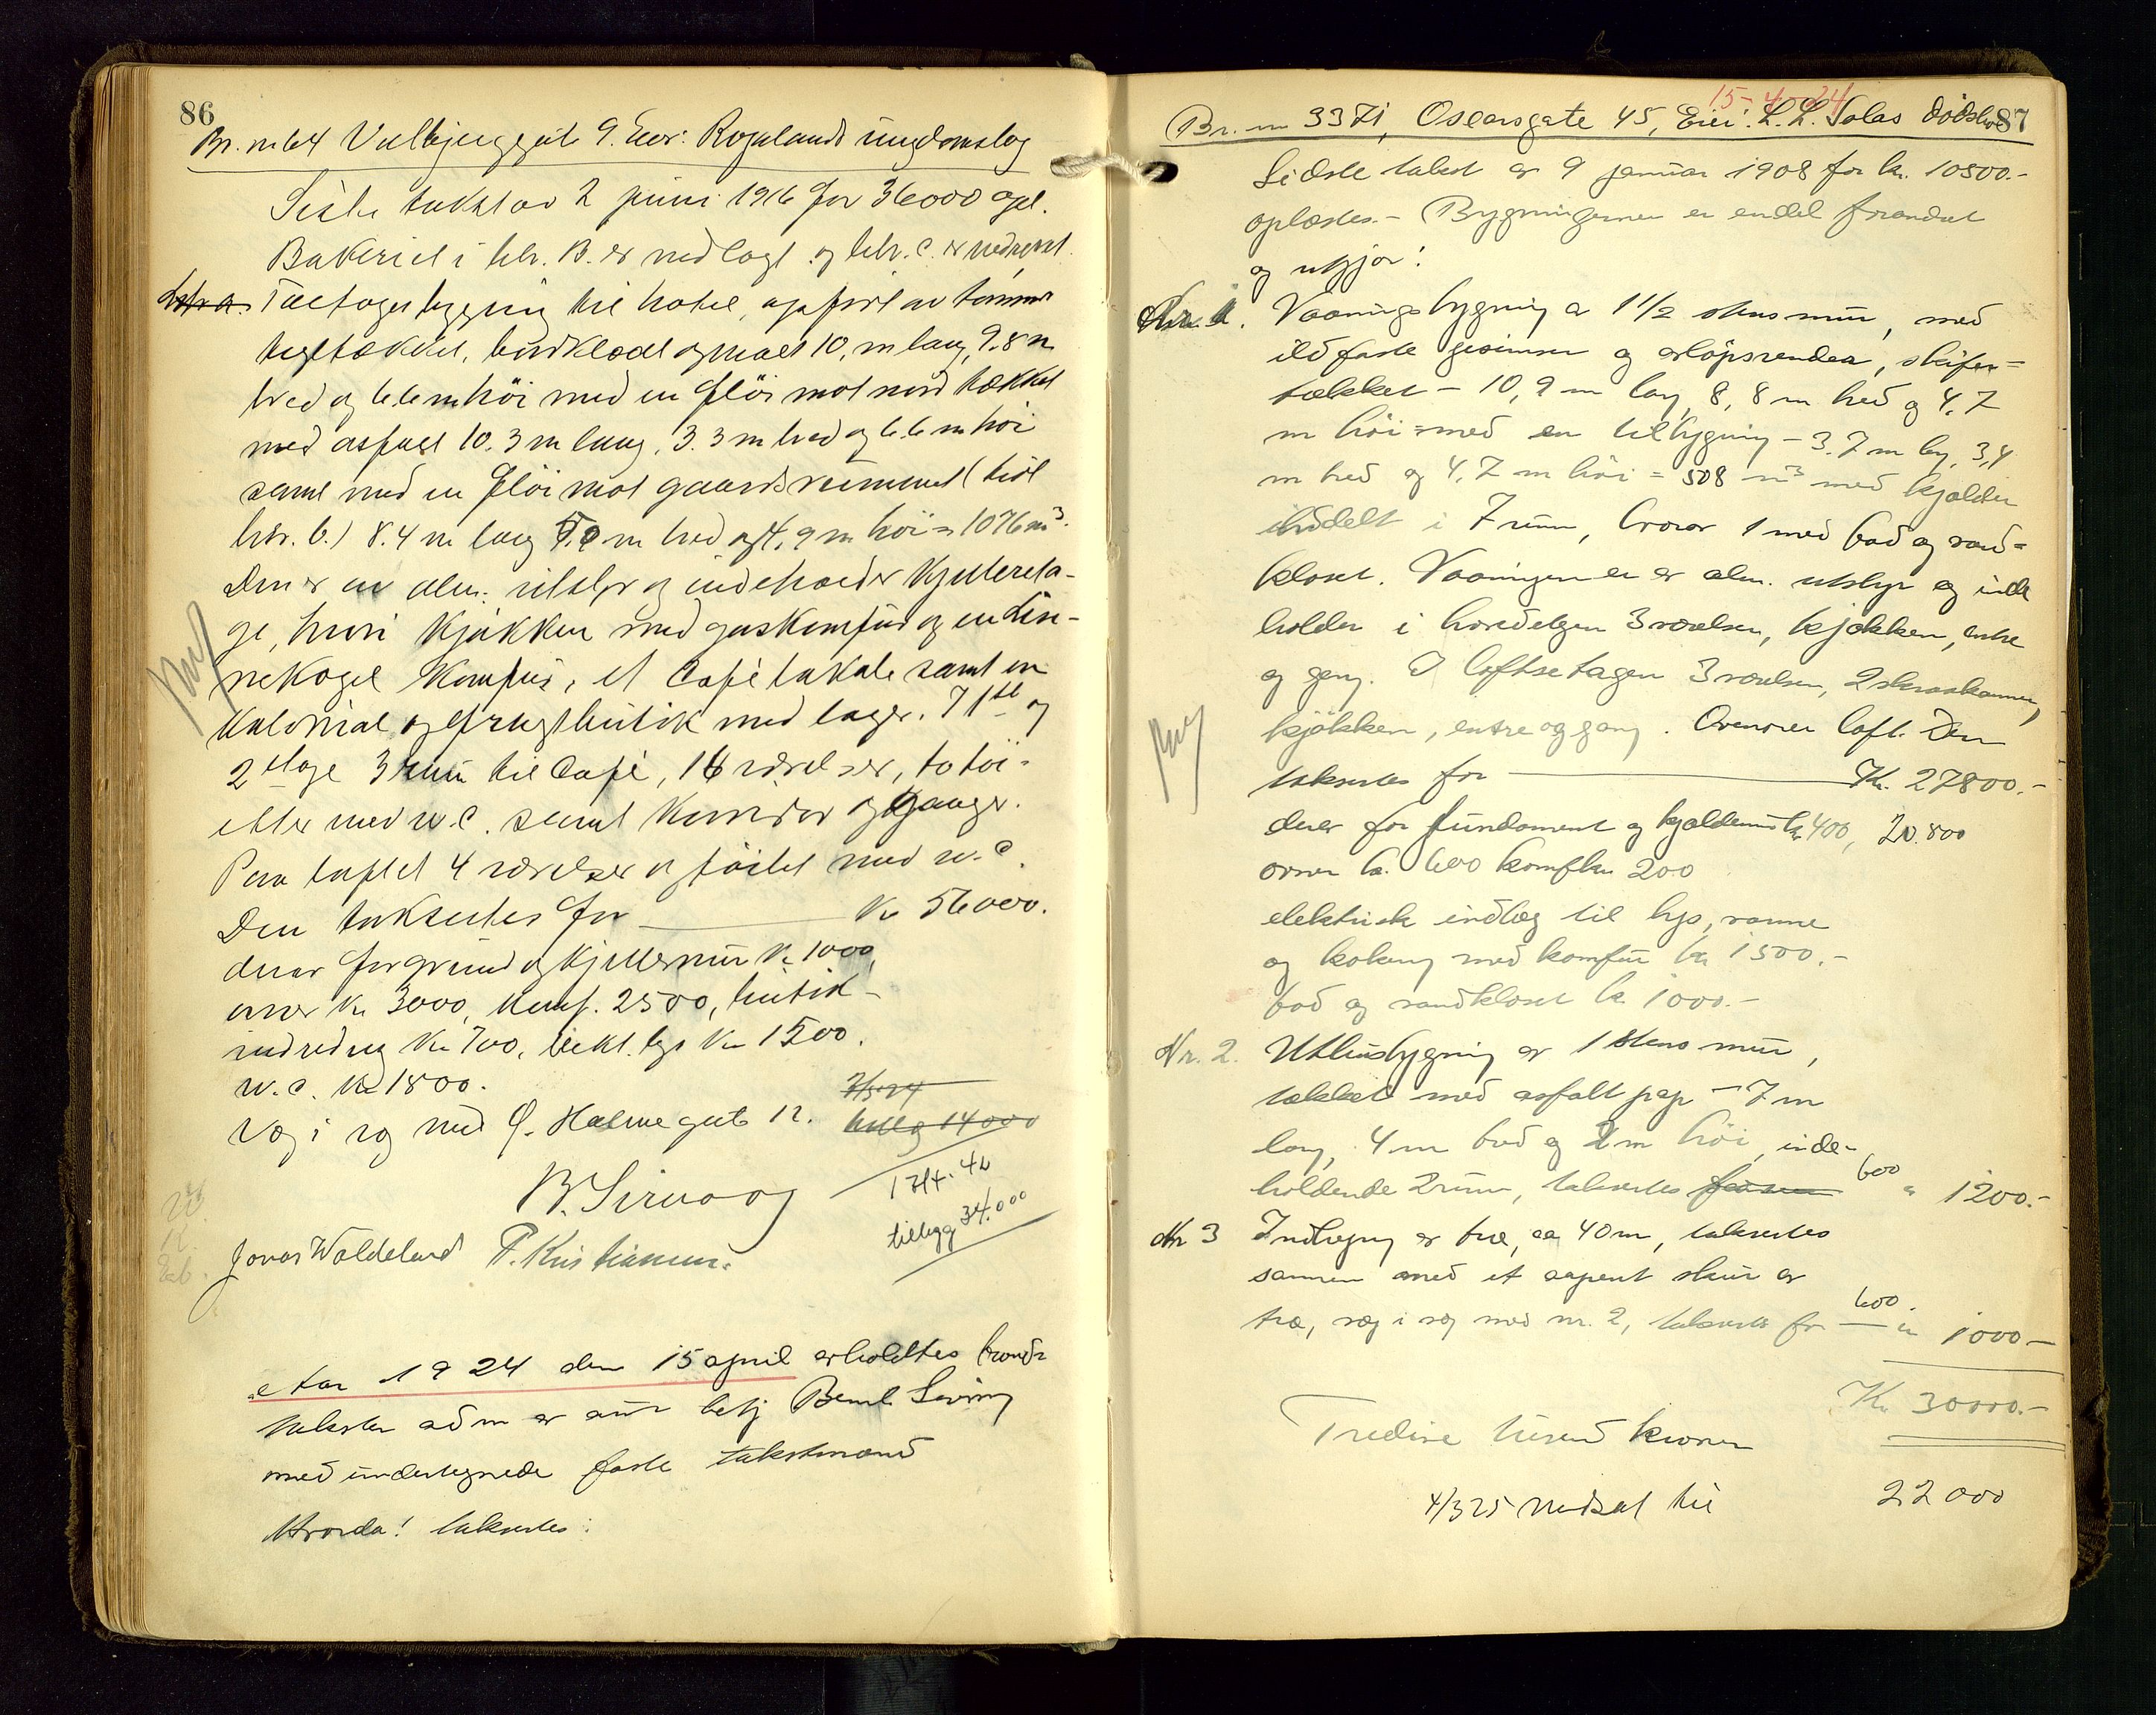 86
Br. nr 64 Valbjerggate 9. Eier: Rogalands ungdomslag
Siste takst av 2 juni 1916 for 36000 opl.
Bakeriet i litr. B. er nedlagt og litr. C. er nedrevet.
Litr A. Toetages bygning til hotel, opført av tømmer
tegltækket, bordklædt og malt 10, m lang, 9.8 m
bred og 6.6 m høi med en fløi mot nord tækket
med asfalt 10.3 m lang, 3.3 m bred og 6.6 m høi
samt med en fløi mot gaardsrummet (tidl
litr. b.) 8.4 m lang m bred og 4.9 m høi = 1076 m³.
Den er av alm. utstyr og indeholder kjellereta-
ge, hvori kjøkken med gaskomfur og en
komfur, et Cafè lokale samt en
Kolonial og frugtbutik med lager. I 1ste og
2 etage 3 rum til Cafè, 16 værelser, to toi-
letter med w.c. samt korridor og gange.
Paa loftet 4 værelser og toilet med w.c.
Den takseres for Kr 56000.
derav for grund og kjellermur kr 1000,
ovner kr 3000, komf. 2500, butik-
indredng kr 700, elekt. lys kr 1500.
w.c. kr 1800.
Væg i væg med Ø. Holmegate 12.
tillegg 14000
17/4-42
tillegg 34.000
B. Sirevaag
Jonas Waldeland P. Kristiansen.
Aar 1924 den 15 april avholdtes brand
takster adm av aut. betj Bernt Sirevaag
med undertegnede faste takstmænd
Hvorda! takseres:
15-4-24
87
Br. nr 3371, Oscarsgate 45, Eier: L. L. Solas dødsbo
Sidste takst av 9 januar 1908 for kr. 10500.-
oplæstes.- Bygningerne er endel forandret
og utgjør:
Nr. 1. Vaaningsbygning a 1 1/2 stens mur, med
ildfaste gesimser og avløpsrender, skifer=
tækket - 10,9 m lang 8,8 m bred og 4,7
m høi = med en tilbygning - 3.7 m lg, 3,4
m bred og 4,7 m høi = 508 m³ med kjælder
inddelt i 7 rum, hvorav 1 med bad og vand=
kloset. Vaaningen er av alm. utstyr og inde
holder i hovedetagen 3 værelser, kjøkken, entre
og gang. I loftsetagen 3 værelser, 2 skraakammer,
kjøkken, entre og gang. Ovenover loft. Den
takseres for Kr. 27800.-
derav for fundament og kjældermur kr 400, 20.800
ovner kr. 600 komfur 200
elektrisk indlæg til lys, varme
og koking med komfur kr 1500.-
bad og vandkloset kr. 1000.-
Nr. 2. Uthusbygning av 1 stens mur,
tækket med asfalt pap - 7 m
lang, 4 m bred og 2 m høi, inde-
holdende 2 rum, takseres for 600 " 1200.-
Nr 3 Indhegng av træ, ca 40 m, takseres
sammen med et aapent skur av
træ, væg i væg med nr. 2, takseres for 600. " 1000-
Kr 30000.-
Tredive tusend kroner
4/3 25 Nedsat til 22000